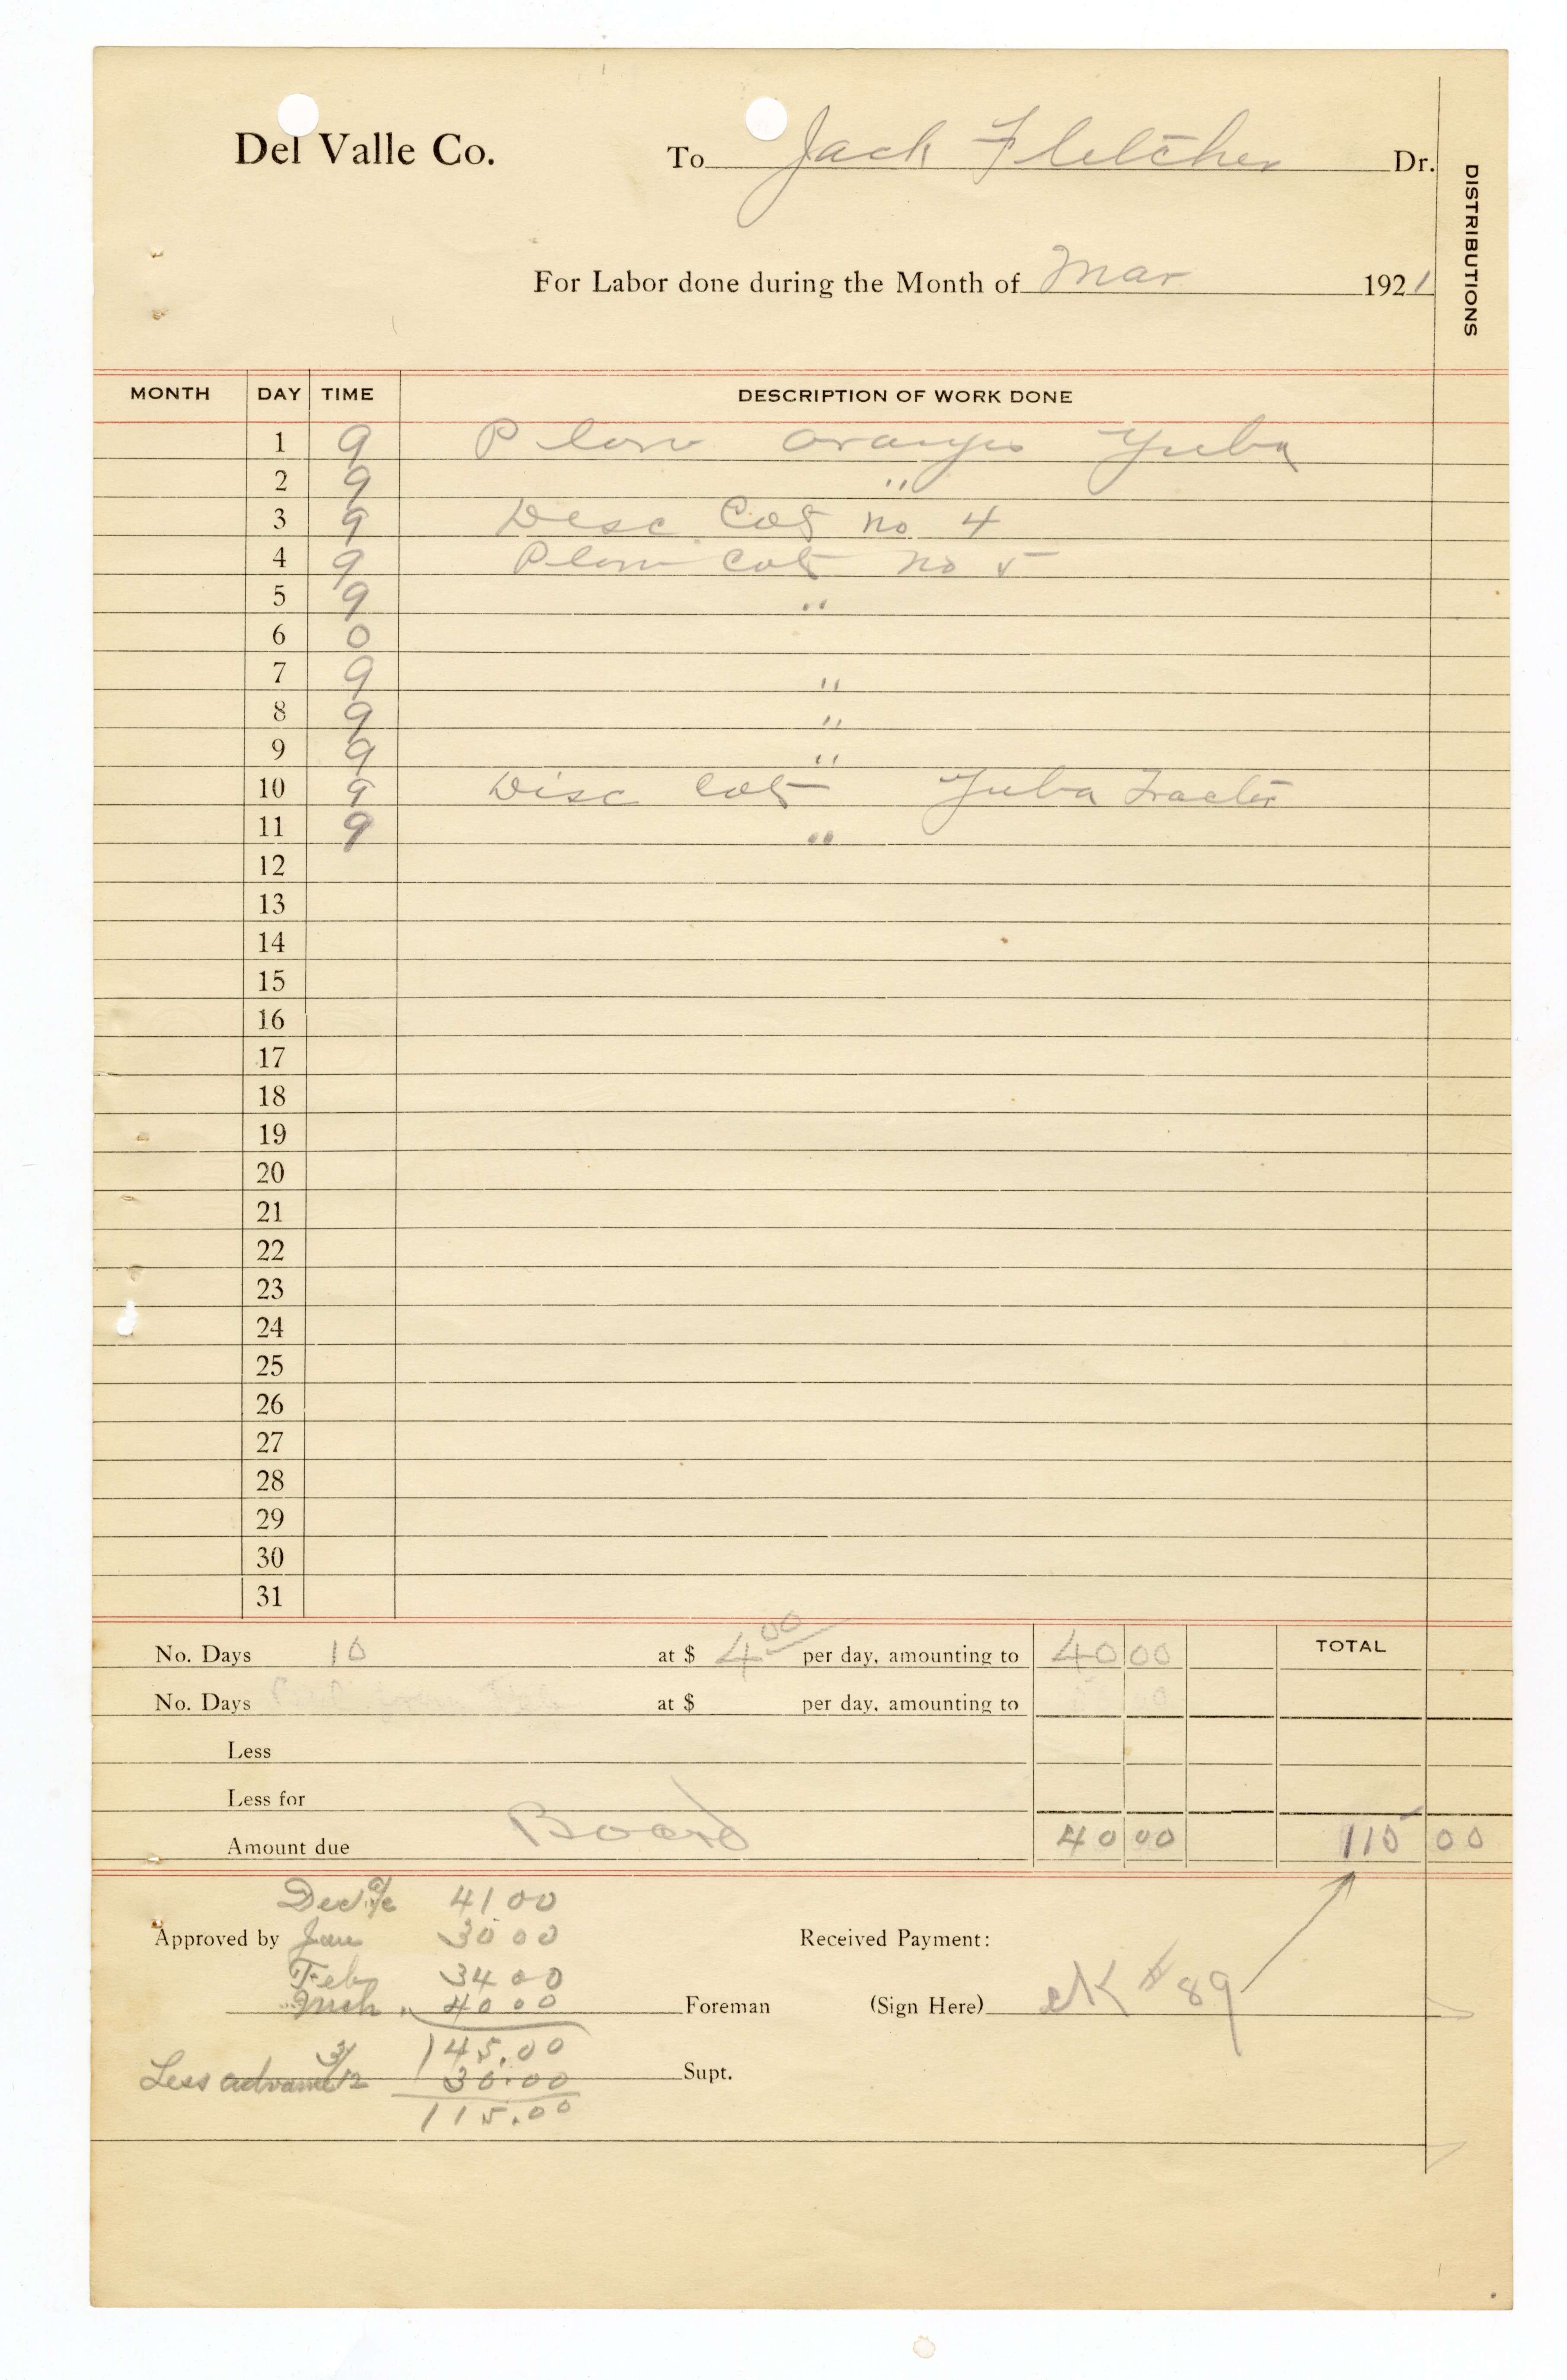 Del Valle Co. To Jack Fletcher Dr.
DISTRIBUTIONS
For Labor done during the Month of Mar 1921
MONTH DAY TIME DESCRIPTION OF WORK DONE
1 9 Plow oranges Yuba
2 9 "
3 9 Desc Cat no 4
4 9 Plow Cat no 5
5 9 "
6 0
7 9 "
8 9 "
9 9 "
10 9 Disc Cat Yuba Tractor
11 9 "
12
13
14
15
16
17
18
19
20
21
22
23
24
25
26
27
28
29
30
31
No. Days 10 at $ 4.00 per day, amounting to 40 00 TOTAL
No. Days at $ per day, amounting to
Less
Less for
Amount due Board 40 00 115 00
Dec 41 00
Approved by Jan 30 00 Received Payment:
Feb 34 00
Mch 40 00 Foreman (Sign Here) cK # 89
145.00
Less advance 3/12 30.00 Supt.
115.00